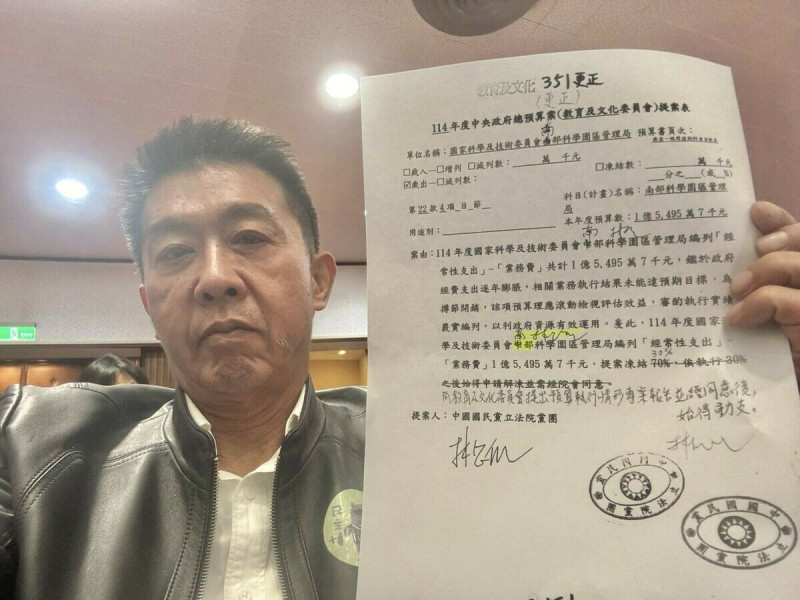 教育及文化 351更正
(更正)
114年度中央政府總預算案(教育及文化委員會)提案表
南
單位名稱：國家科學及技術委員會中部科學園區管理局 預算書頁次：
□歲入—□增列 □減列數： 萬 千元 □凍結數： 萬 千元
☑歲出—□減列數： 分之 (或 %)
科目(計畫)名稱：南部科學園區管理
局
第22款4項 目 節
本年度預算數：1億5,495萬7千元
用途別：
南
案由：114年度國家科學及技術委員會中部科學園區管理局編列「經
常性支出」-「業務費」共計1億5,495萬7千元，鑑於政府
經費支出逐年膨脹，相關業務執行結果未能達預期目標，為
撙節開銷，該項預算理應滾動檢視評估效益，審酌執行實績
覈實編列，以利政府資源有效運用。爰此，114年度國家科
南
學及技術委員會中部科學園區管理局編列「經常性支出」
-「業務費」1億5,495萬7千元，提案凍結70%，俟執行30%
30%
之後始得申請解凍並需經院會同意。
向教育及文化委員會提出預算執行情形專案報告並經同意後，
始得動支。
提案人：中國國民黨立法院黨團
中國國民黨
立法院黨團
中國國民黨
立法院黨團